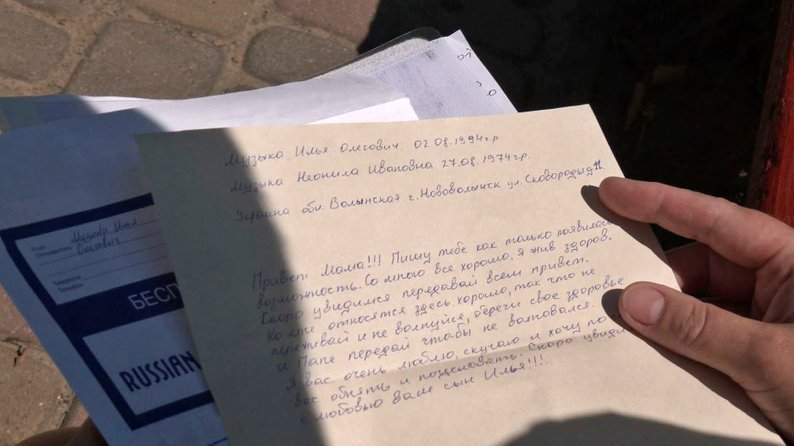 Музыко Илья Олегович. 02.08.1994г.р
Музыка Неонила Ивановна 27.08.1974г.р.
Украина обл. Волынская г. Нововолынск ул. Сковороды д 11
Привет Мама!!! Пишу тебе как только появилась
возможность. Со мной все хорошо, я жив здоров.
Скоро увидимся передавай всем привет.
Ко мне относятся здесь хорошо, так что не
переживай и не волнуйся, береги свое здоровье
и Папе передай чтобы не волновался.
Я вас очень люблю, скучаю и хочу по
вас обнять и поцеловать. Скоро увиди
с любовью ваш сын Илья!!!
Олегович
БЕСП
RUSSIAN